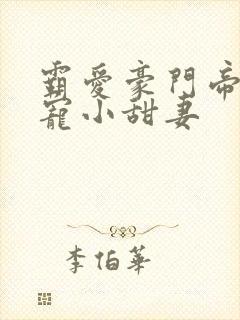 霸愛豪門帝
寵小甜妻
李伯華